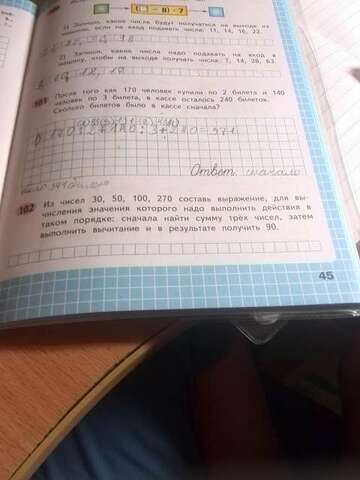 (□ − 8) · 7
1) Запиши, какие числа будут получаться на выходе из
машины, если на вход подавать числа: 11, 14, 16, 22.
98
2) Запиши, какие числа надо подавать на вход в
машину, чтобы на выходе получать числа: 7, 14, 28, 63.
12, 17
101 После того как 170 человек купили по 2 билета и 140
человек по 3 билета, в кассе осталось 240 билетов.
Сколько билетов было в кассе сначала?
Ответ: сначало
102 Из чисел 30, 50, 100, 270 составь выражение, для вы-
числения значения которого надо выполнить действия в
таком порядке: сначала найти сумму трёх чисел, затем
выполнить вычитание и в результате получить 90.
45